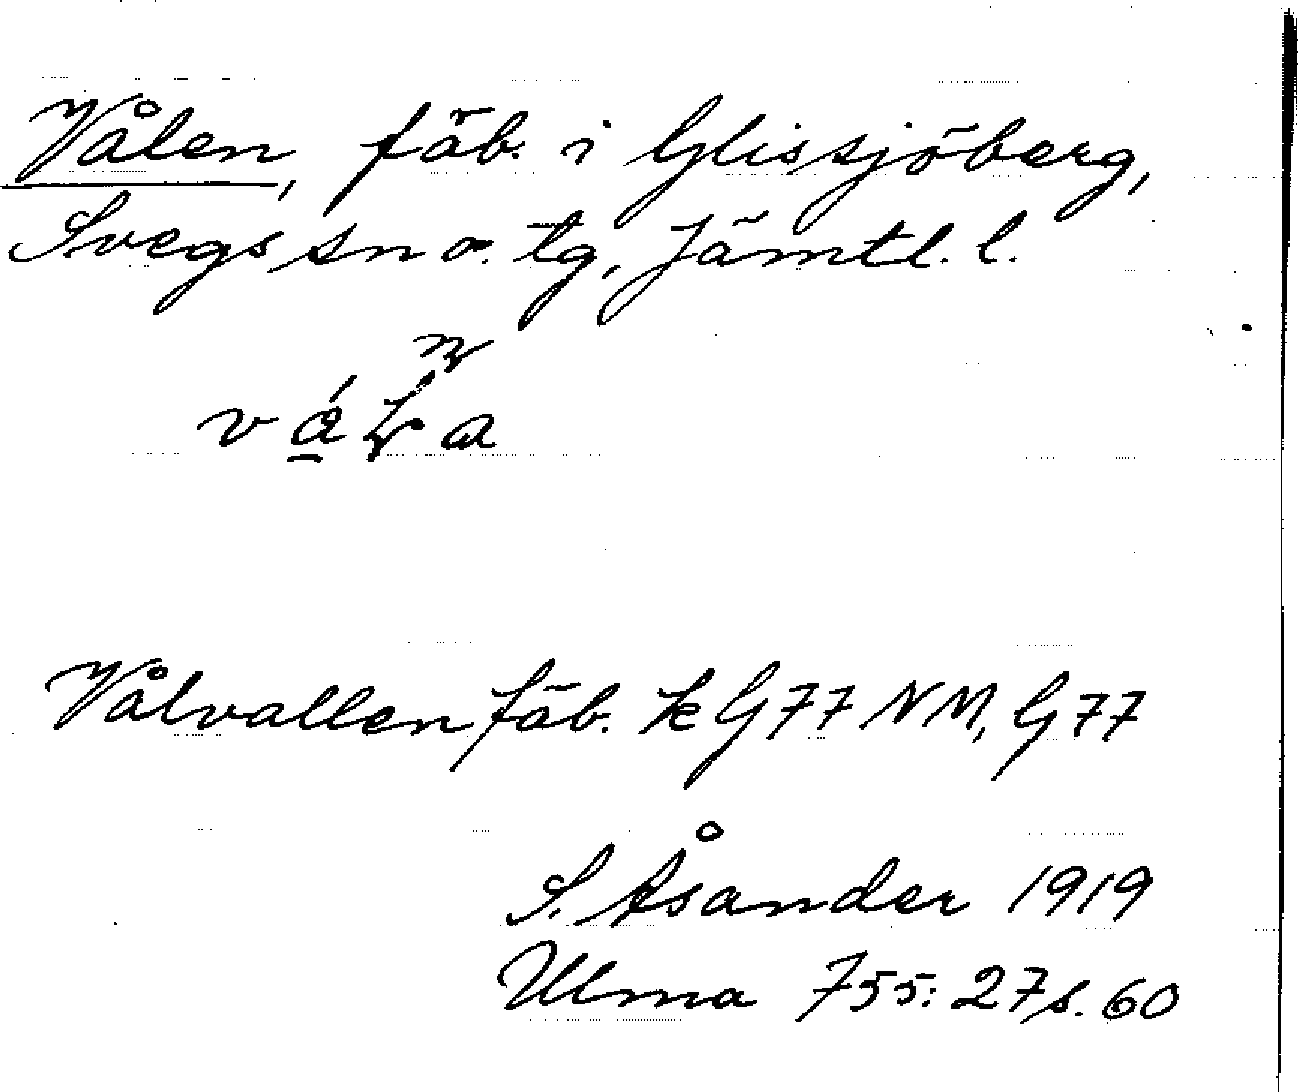 Vålen, fäb. i Glissjöberg,
Svegs sn o. tg, Jämtl. l.
Vålvallen fäb. k G77 NM, G77
S. Åsander 1919
Ulma 755:27 s. 60